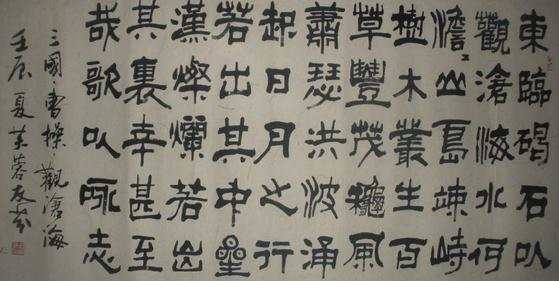 東臨碣石以
觀滄海水何
澹〻山島竦峙
樹木叢生百
草豐茂穐風
蕭瑟洪波涌
起日月之行
若出其中星
漢燦爛若出
其裏幸甚至
哉歌以詠志
三國曹操觀滄海
壬辰夏芙蓉